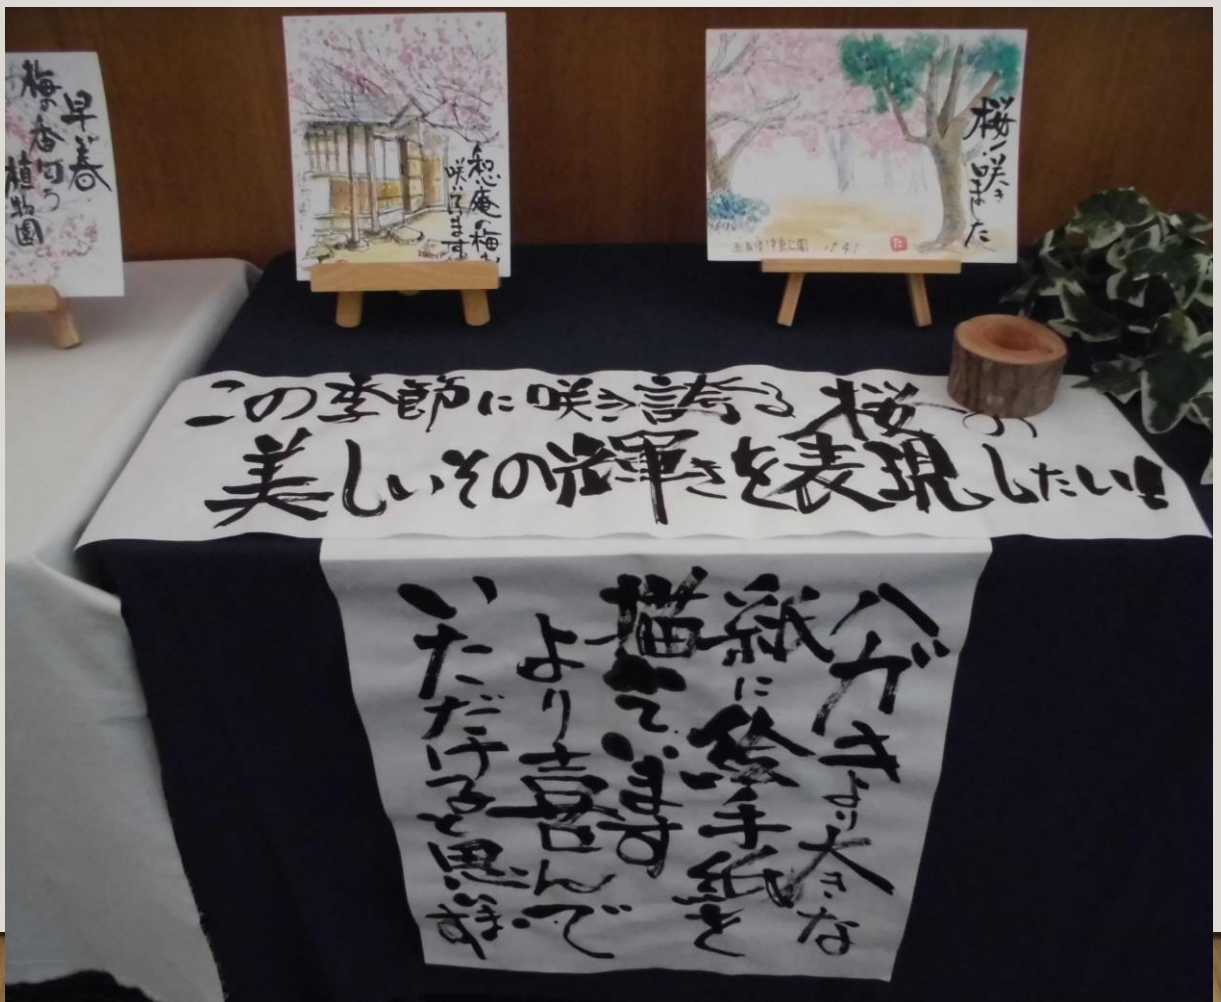 早い春
梅の香匂う
植物園
和心庵の梅も
咲いてます
桜咲きました
中央公園
この季節に咲き誇る桜の
美しいその輝きを表現したい!!
ハガキより大きな
紙に絵手紙を
描いています
より喜んで
いただけると思います